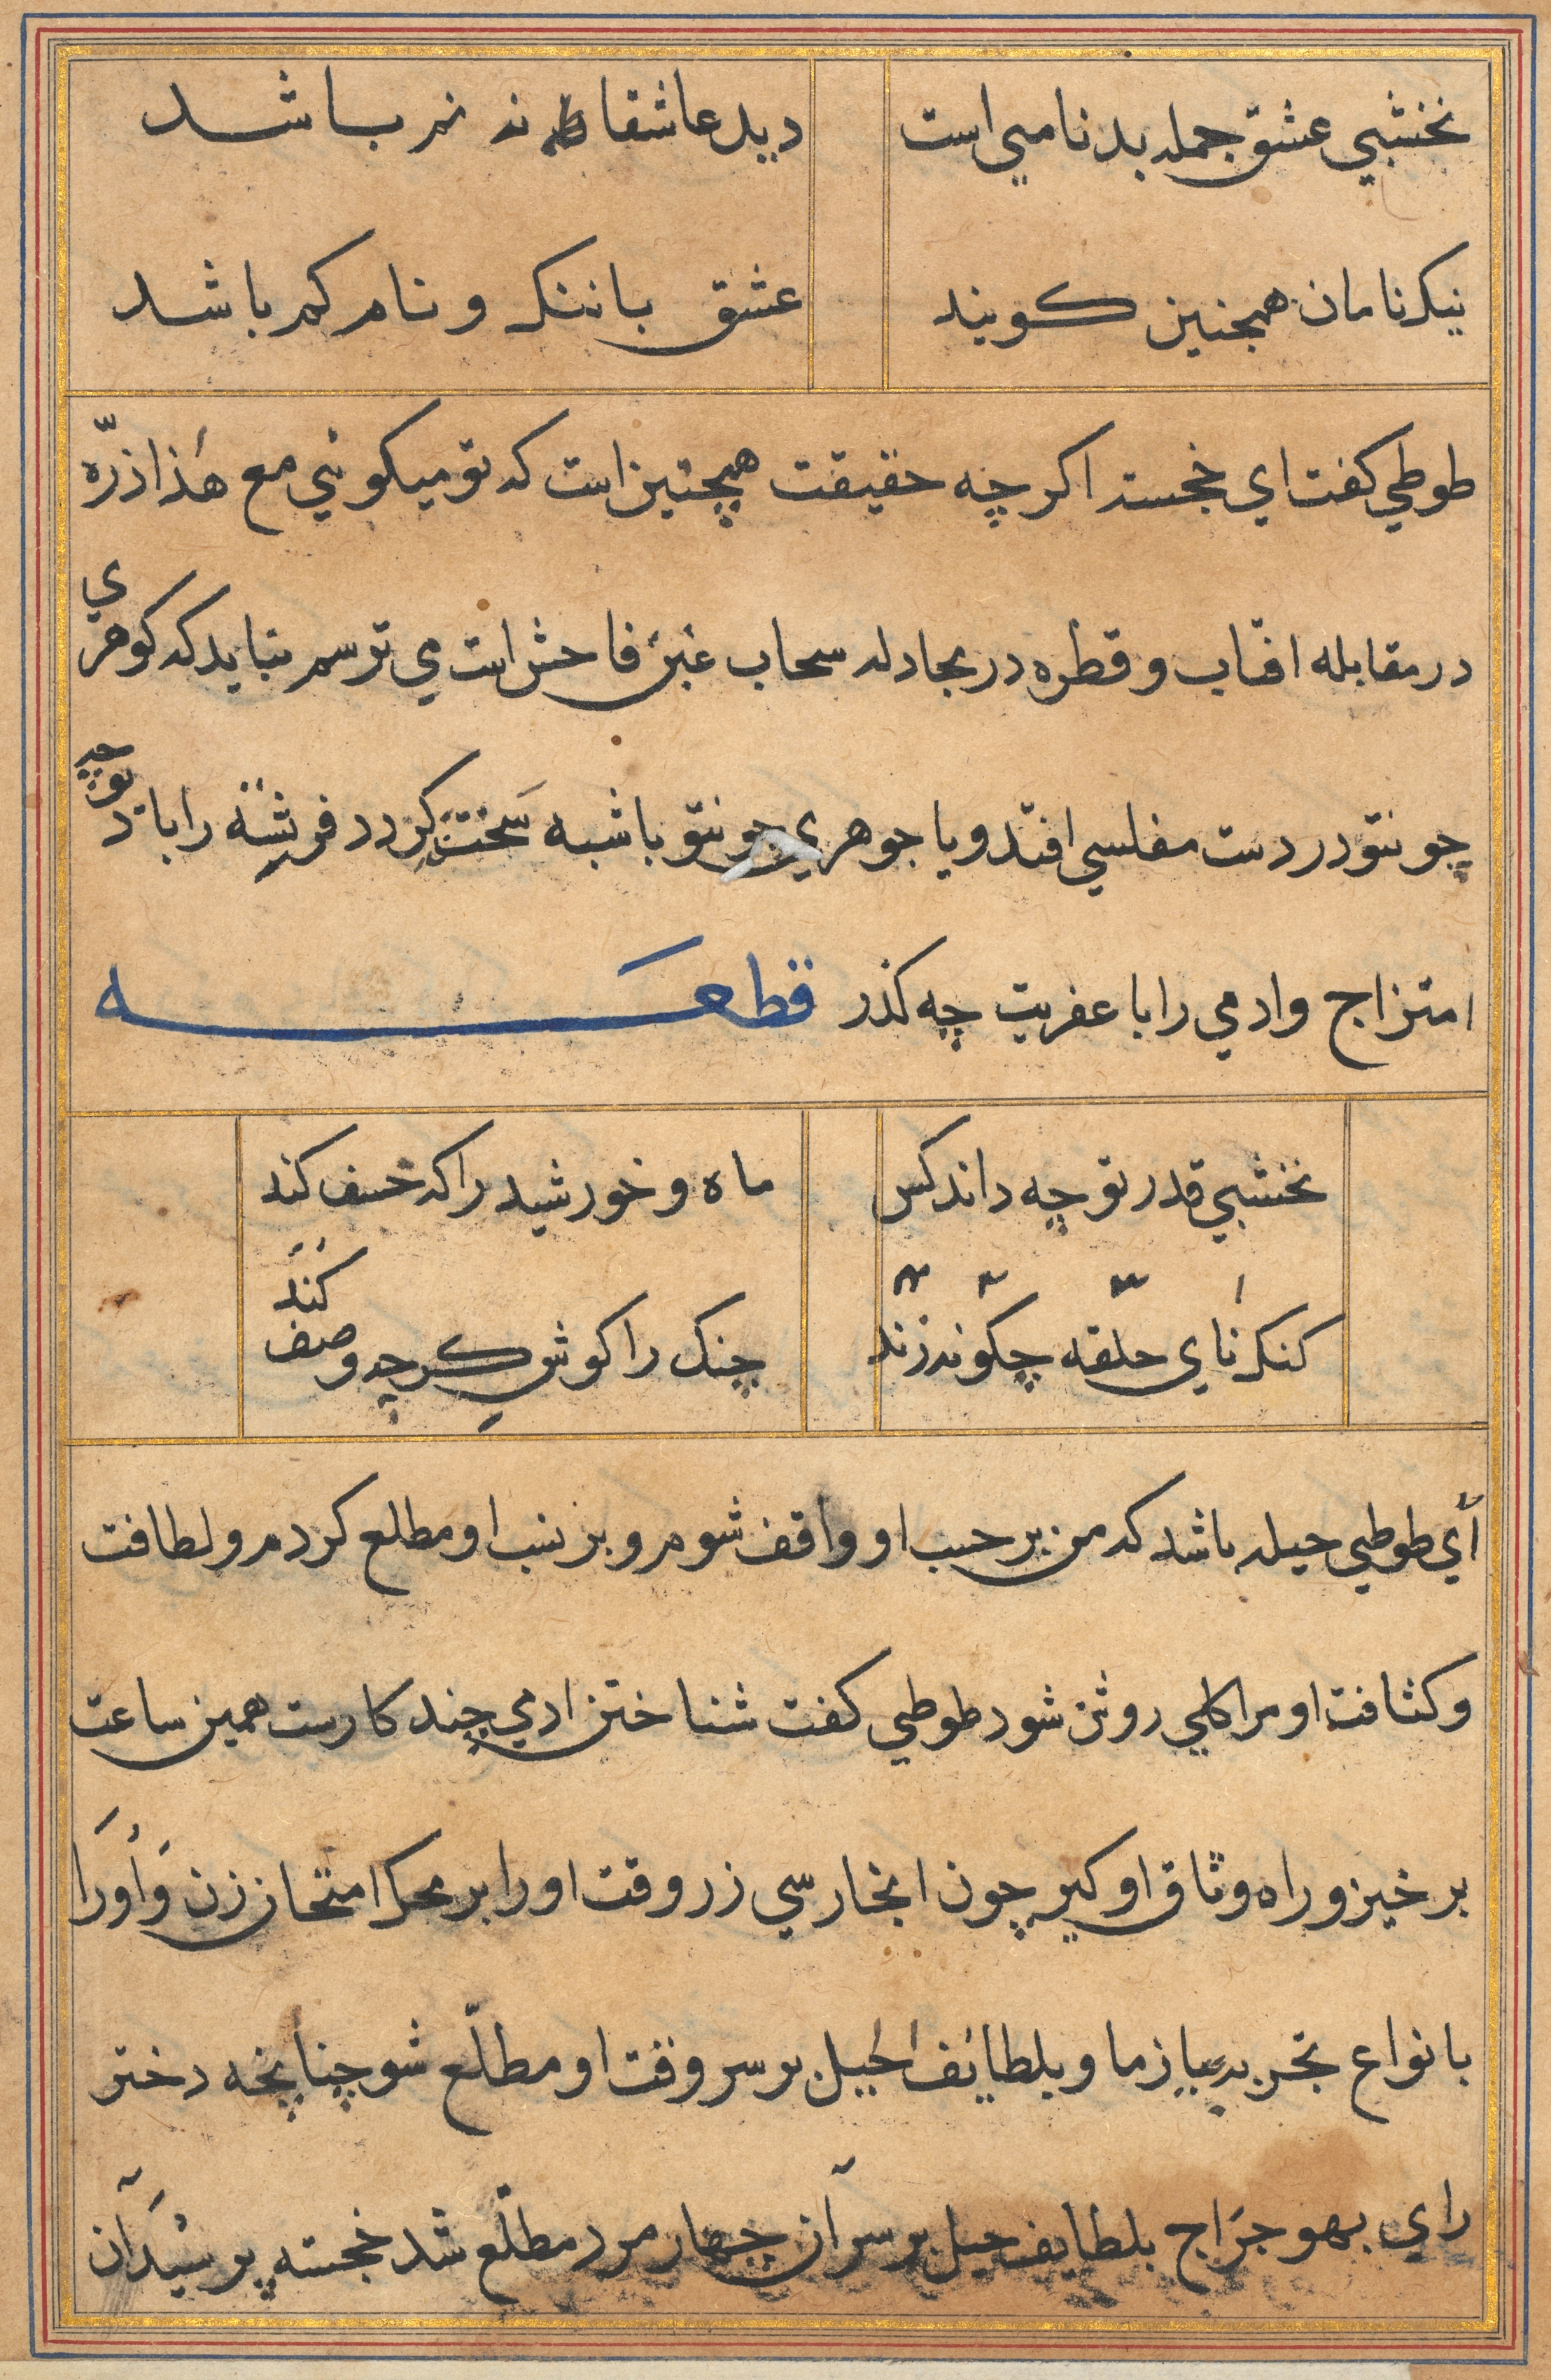 نخشبي عشق جمله بدنامي است دیده عاشقان نه نم باشد
نیکنامان همچنین کویند عشق با ننک و نام کم باشد
طوطي کفت اي خجسته اکر چه حقیقت همچنین است که تو میکوئي مع هذا ذرّه
در مقابله افتاب و قطره در مجادله سحاب غبن فاحش است مي ترسم نباید که کوهري
چو نتو در دست مفلسي افتد و یا جوهري چو نتو با شبه سخته کردد فرشته را با دیو چه
امتزاج وادمي را با عفریت چه کذر قطعه
نخشبي قدر تو چه داند کس ماه و خورشید را که خسف کند
کنک ناي حلقه چکونه زند چنک را کوش کر چه وصف کند
أي طوطي حیله باشد که من بر حسب او واقف شوم و بر نسب او مطلع کردم و لطافت
و کثافت او مرا کلي روشن شود طوطي کفت شناختن ادمي چند کارست همین ساعت
برخیز و راه وثاق او کیر چون انجا رسي زر وقت او را بر محک امتحان زن وأورا
بانواع تجربه بیازما و بلطائف الحیل بر سر وقت او مطلّع شو چنانچه دختر
راي بهوجراج بلطایف حیل بر سر آن چهار مرد مطلّع شد خجسته پرسید آن